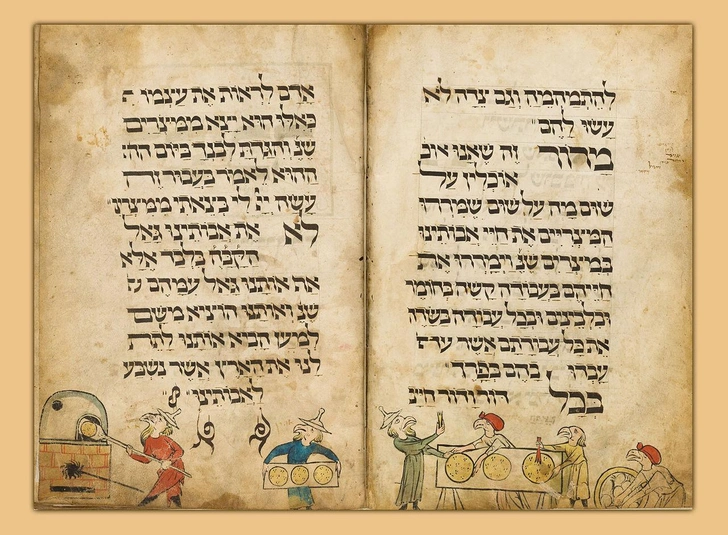 להתמהמה וגם צדה לא
עשו להם
מרור זה שאנו אוכ
אוכלין על
שום מה על שום שמררו
המצריים את חיי אבותינו
במצרים שנ' וימררו את
חייהם בעבודה קשה בחומר
ובלבנים ובכל עבודה בשדה
את כל עבודתם אשר
עבדו בהם בפרך
בכל דור ודור חייב
אדם לראות את עצמו כ
כאלו הוא יצא ממצרים
שנ' והגדת לבנך ביום ההו
ההוא לאמר בעבור זה
עשה יי לי בצאתי ממצרים
לא את אבותינו גאל
הקבה בלבד אלא
אף אותנו גאל עמהם
שנ' ואותנו הוציא משם
למען הביא אותנו לתת
לנו את הארץ אשר נשבע
לאבותינו